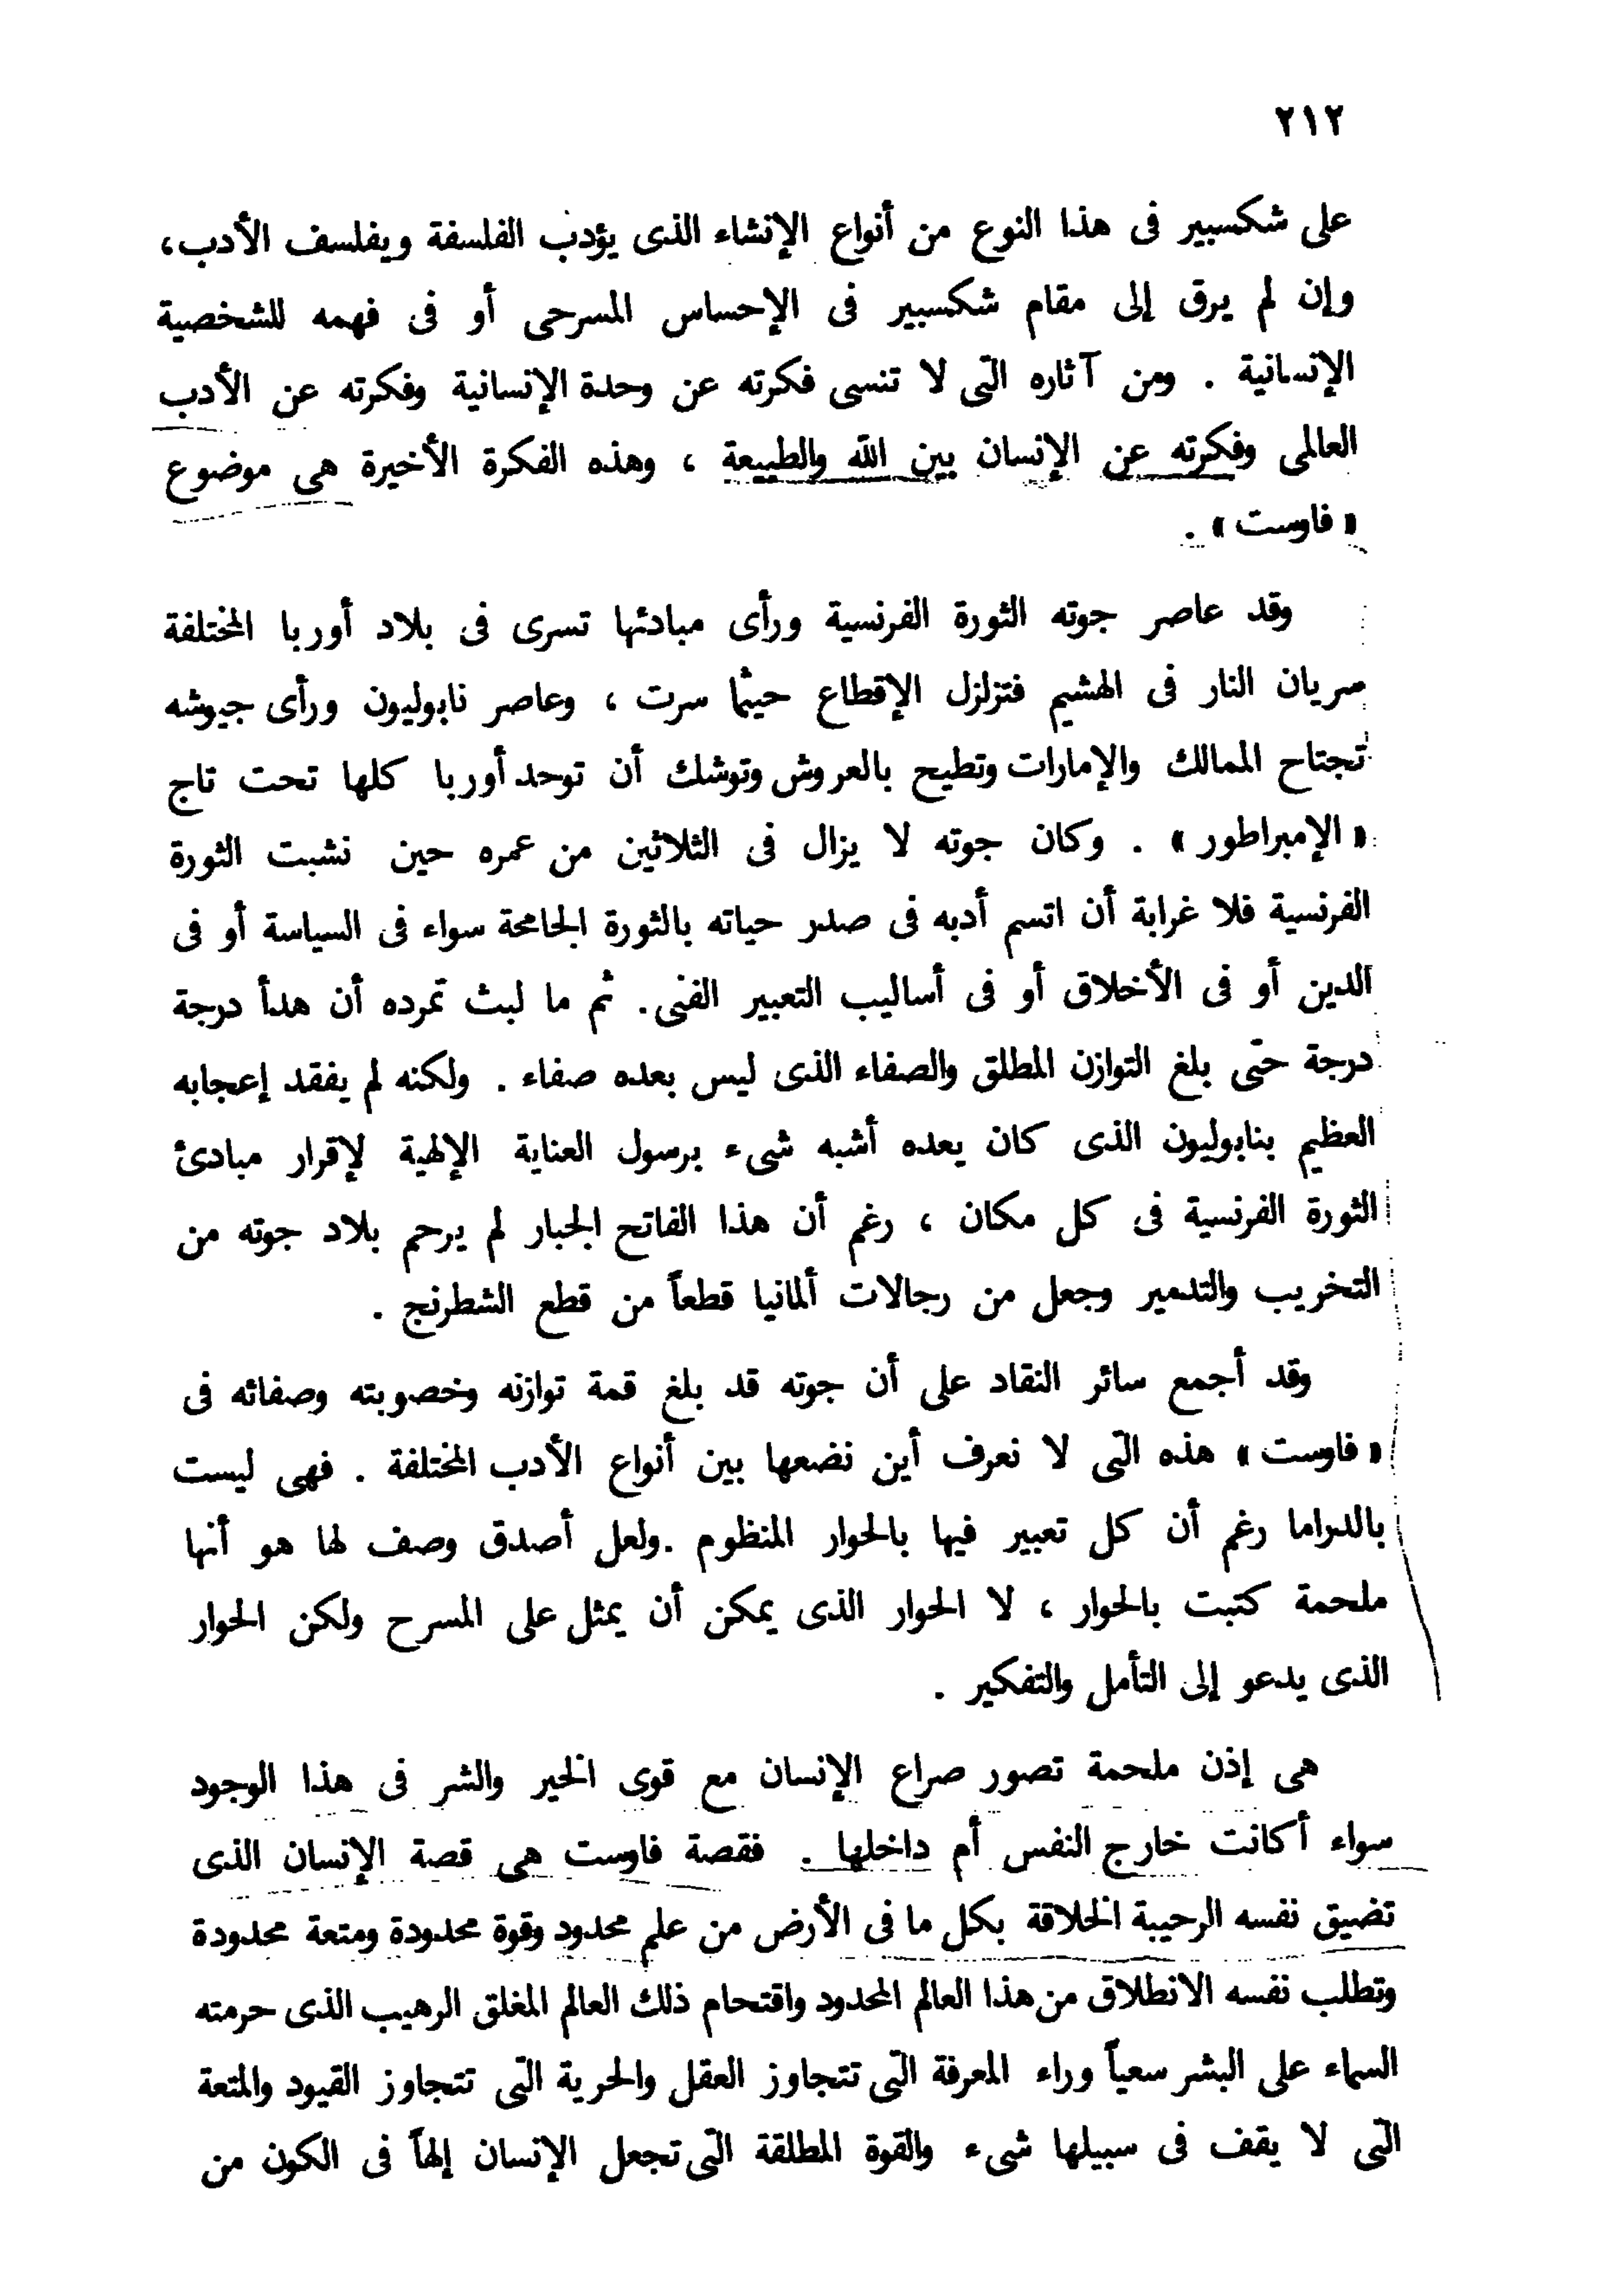 ٢١٢
على شكسبير فى هذا النوع من أنواع الإنشاء الذى يؤدب الفلسفة ويفلسف الأدب،
وإن لم يرق إلى مقام شكسبير فى الإحساس المسرحى أو فى فهمه للشخصية
الإنسانية . ومن آثاره التى لا تنسى فكرته عن وحدة الإنسانية وفكرته عن الأدب
العالمى وفكرته عن الإنسان بين الله والطبيعة ، وهذه الفكرة الأخيرة هى موضوع
« فاوست » .
وقد عاصر جوته الثورة الفرنسية ورأى مبادئها تسرى فى بلاد أوربا المختلفة
سريان النار فى الهشيم فتزلزل الإقطاع حيثما سرت ، وعاصر نابوليون ورأى جيوشه
تجتاح الممالك والإمارات وتطيح بالعروش وتوشك أن توحد أوربا كلها تحت تاج
« الإمبراطور » . وكان جوته لا يزال فى الثلاثين من عمره حين نشبت الثورة
الفرنسية فلا غرابة أن اتسم أدبه فى صدر حياته بالثورة الجامحة سواء فى السياسة أو فى
الدين أو فى الأخلاق أو فى أساليب التعبير الفنى. ثم ما لبث تمرده أن هدأ درجة
درجة حتى بلغ التوازن المطلق والصفاء الذى ليس بعده صفاء . ولكنه لم يفقد إعجابه
العظيم بنابوليون الذى كان يعده أشبه شىء برسول العناية الإلهية لإقرار مبادئ
الثورة الفرنسية فى كل مكان ، رغم أن هذا الفاتح الجبار لم يرحم بلاد جوته من
التخريب والتدمير وجعل من رجالات ألمانيا قطعاً من قطع الشطرنج .
وقد أجمع سائر النقاد على أن جوته قد بلغ قمة توازنه وخصوبته وصفائه فى
« فاوست » هذه التى لا نعرف أين نضعها بين أنواع الأدب المختلفة . فهى ليست
بالدراما رغم أن كل تعبير فيها بالحوار المنظوم .ولعل أصدق وصف لها هو أنها
ملحمة كتبت بالحوار ، لا الحوار الذى يمكن أن يمثل على المسرح ولكن الحوار
الذى يدعو إلى التأمل والتفكير .
هى إذن ملحمة تصور صراع الإنسان مع قوى الخير والشر فى هذا الوجود
سواء أكانت خارج النفس أم داخلها . فقصة فاوست هى قصة الإنسان الذى
تضيق نفسه الرحيبة الخلاقة بكل ما فى الأرض من علم محدود وقوة محدودة ومتعة محدودة
وتطلب نفسه الانطلاق من هذا العالم المحدود واقتحام ذلك العالم المغلق الرهيب الذى حرمته
السماء على البشر سعياً وراء المعرفة التى تتجاوز العقل والحرية التى تتجاوز القيود والمتعة
التى لا يقف فى سبيلها شىء والقوة المطلقة التى تجعل الإنسان إلهاً فى الكون من